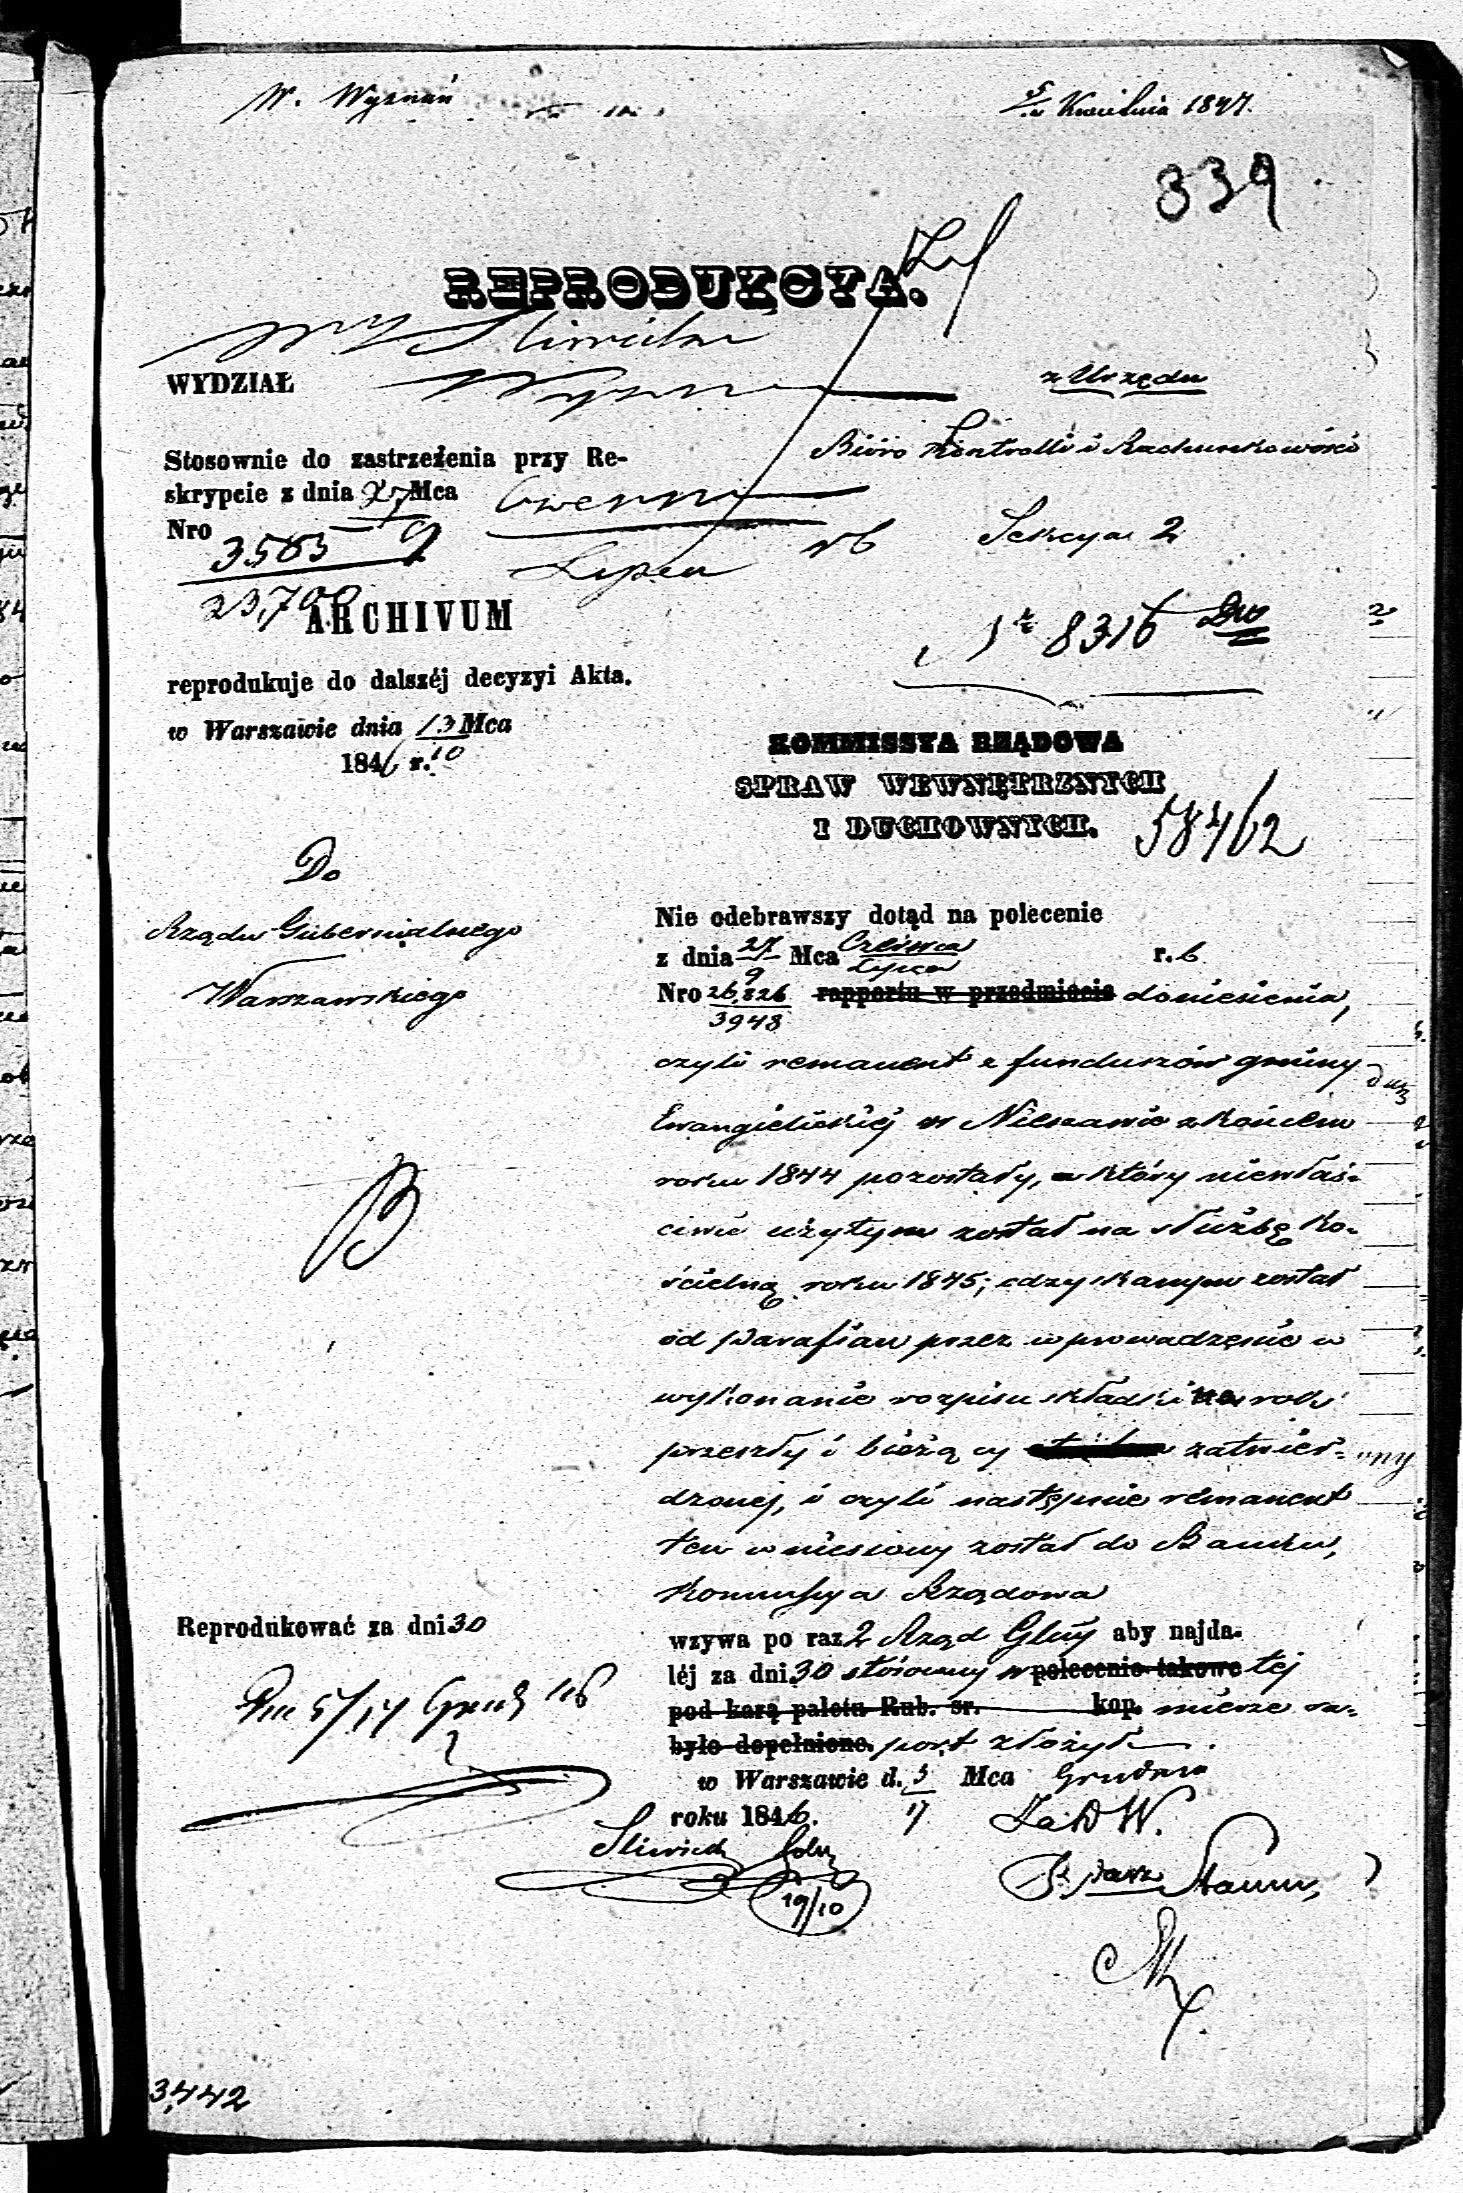 W. Wyznań
5/ Kwietnia 1847.
339
REPRODUKCYA.
WYDZIAŁ
z Urzędu
Stosownie do zastrzeżenia przy Re-
skrypcie z dnia 27 Mca Czerwca
9 Lipca r 6
Nro 3585
23,700
Biuro Kontrolli i Rachunkowości
Sekcya 2
Nr 8316
ARCHIVUM
reprodukuje do dalszéj decyzyi Akta.
w Warszawie dnia 13 Mca
1846 r. 10
KOMMISSYA RZĄDOWA
SPRAW WEWNĘTRZNYCH
I DUCHOWNYCH.
58462
Do
Rządu Gubernialnego
Warszawskiego
Nie odebrawszy dotąd na polecenie
z dnia 27/9 Mca Czerwca/Lipca r. 6
Nro 26,826/3948 rapportu w przedmiocie doniesienia,
czyli remanent z funduszów gminy
Ewangielickiéj w Nieszawie z końcem
roku 1844 pozostały, a który niewłaś-
ciwie użytym został na służbę Ko-
ścielną roku 1845; odzyskanym został
od parafian przez wprowadzenie w
wykonanie rozpisu składki na rok
przeszły i bieżący zatwier-
dzonej, i czyli następnie remanent
ten wniesiony został do Banku,
Kommissya Rządowa
wzywa po raz 2 Rząd Glny aby najda-
léj za dni 30 stósowny w polecenie takowe téj
pod karą paletu Rub. sr. kop. mierze ra-
było dopełnione. port złożył.
w Warszawie d. 5/17 Mca Grudnia
roku 1846.
Reprodukować za dni 30
Dnia 5/17 Grud 1846
B
19/10
3,442